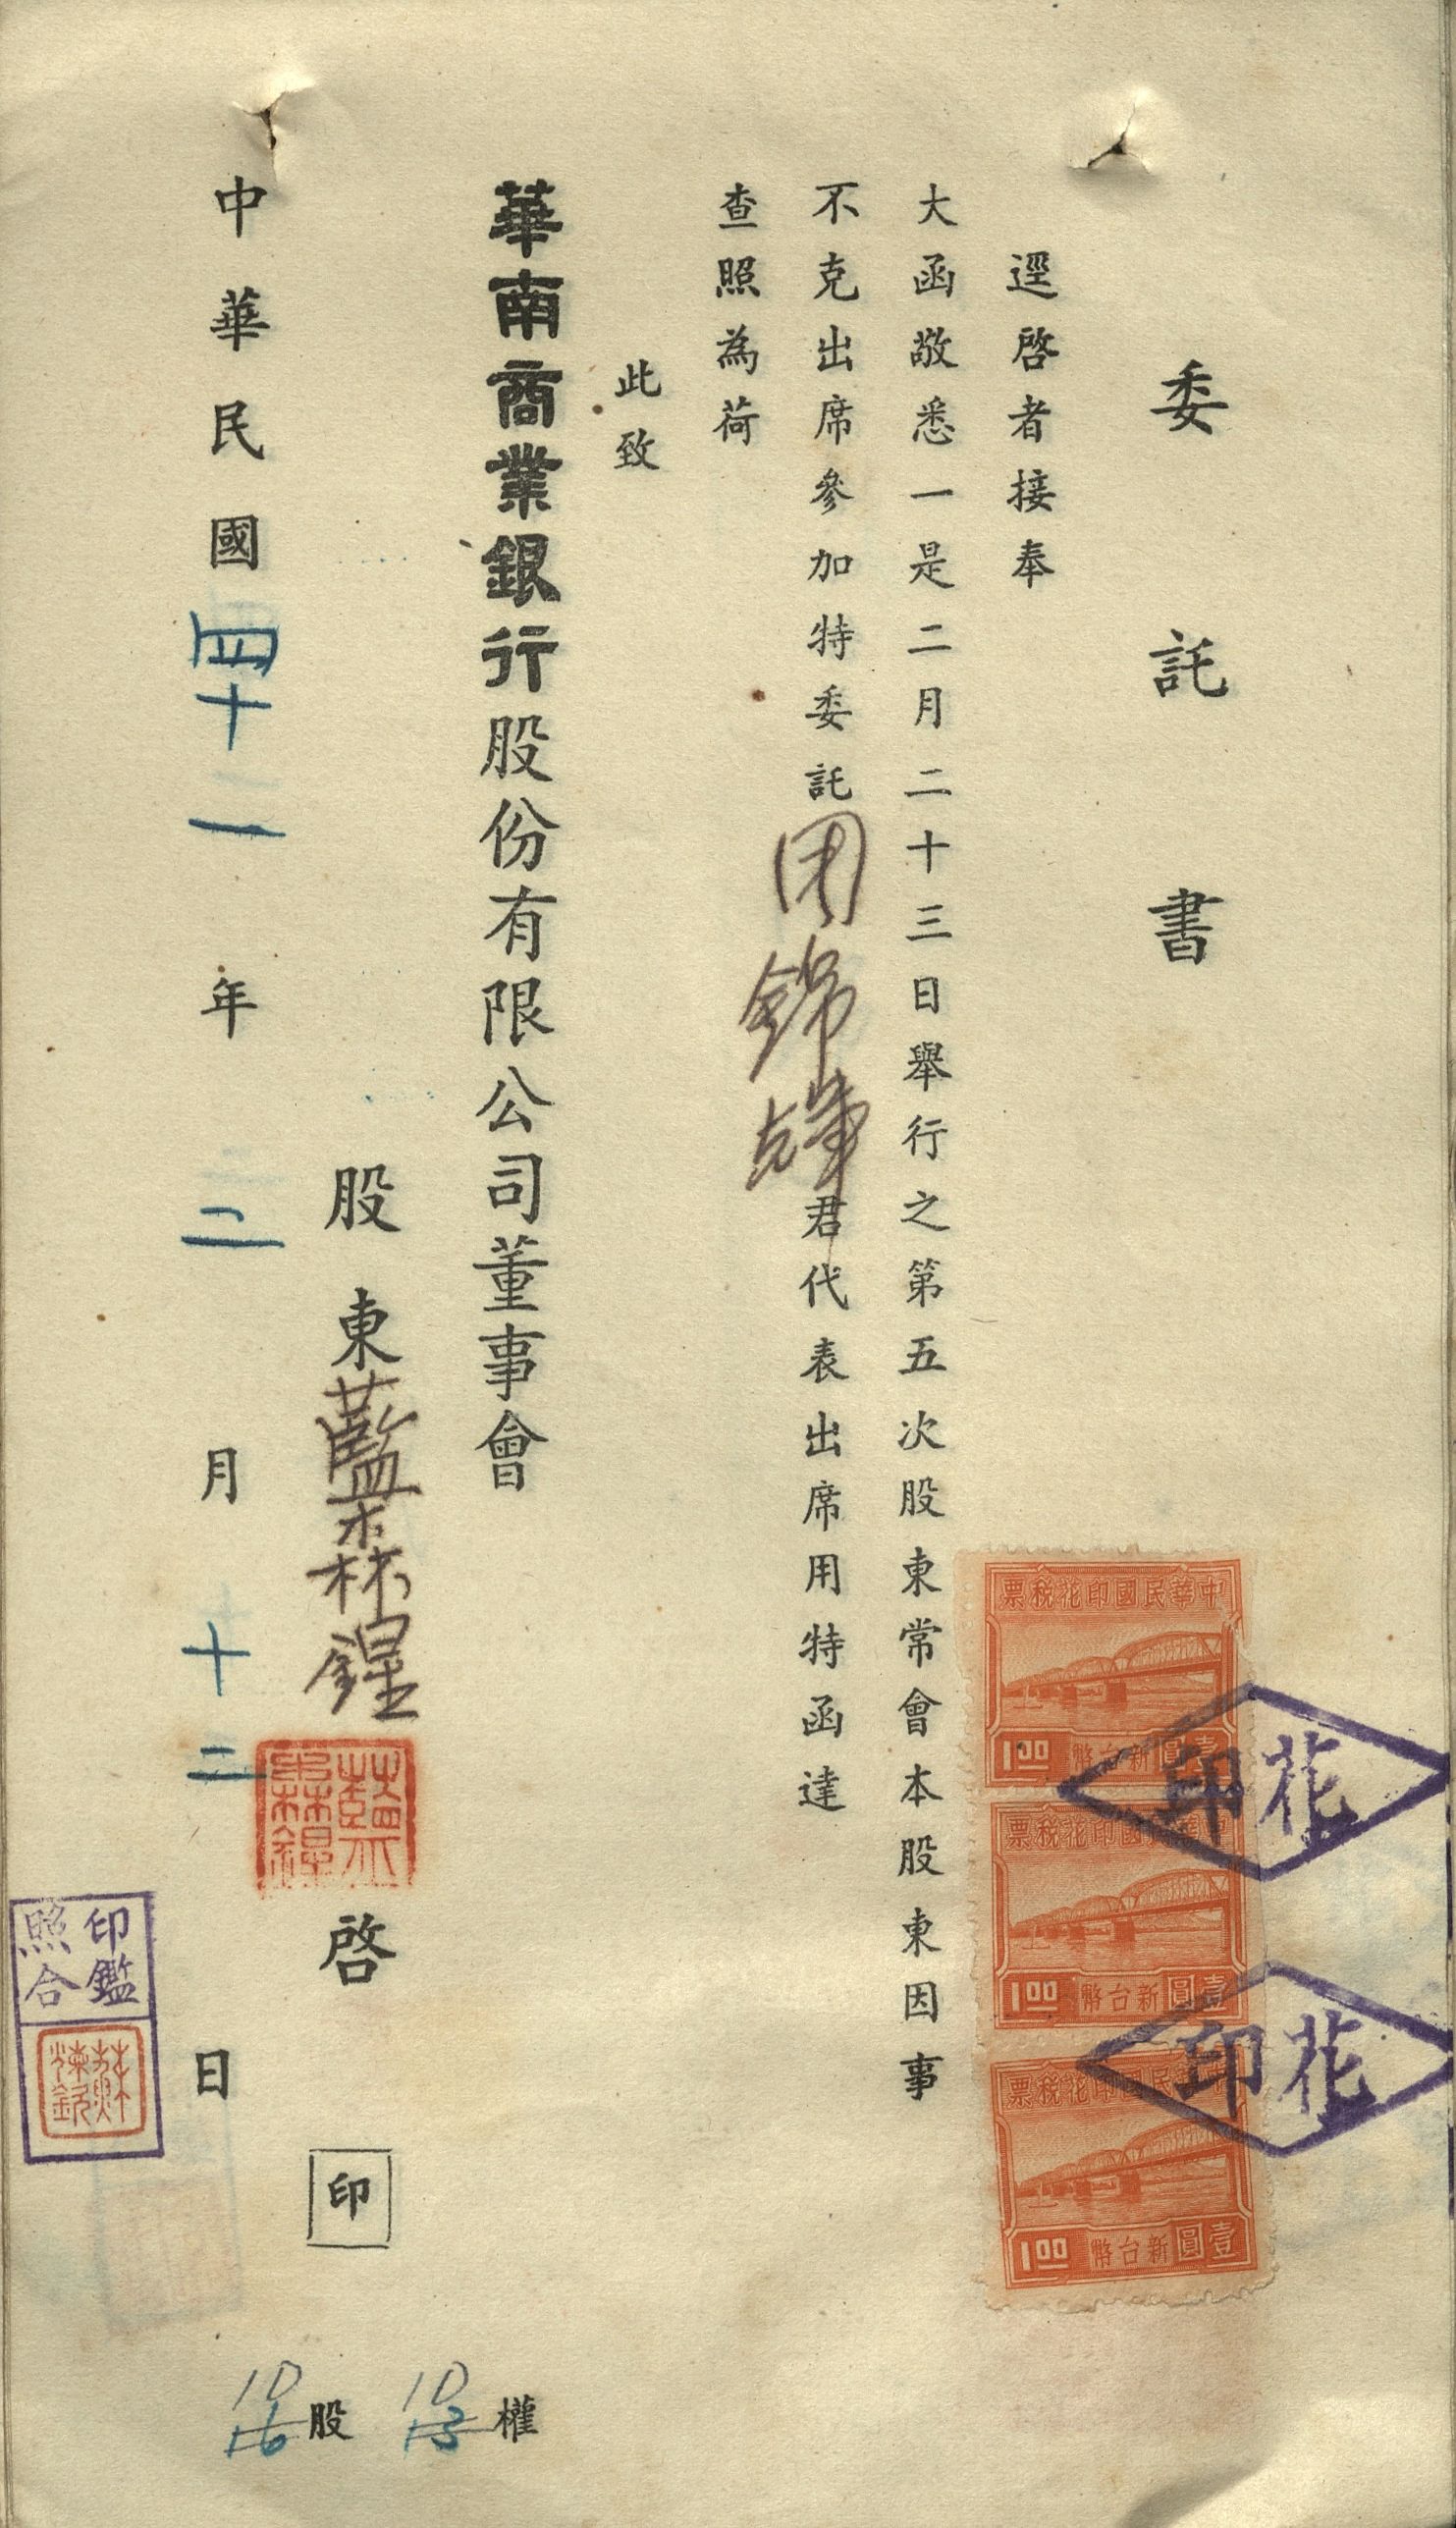 委託書
逕啓者接奉
大函敬悉一是二月二十三日舉行之第五次股東常會本股東因事
不克出席參加特委託周錦輝君代表出席用特函達
查照為荷
此致
華南商業銀行股份有限公司董事會
股東藍森 啓 印
中華民國四十一年二月十二日
10權
13
10股
16
中華民國印花稅票
壹圓新台幣 1.00
中華民國印花稅票
壹圓新台幣 1.00
中華民國印花稅票
壹圓新台幣 1.00
花印
花印
印鑑
照合